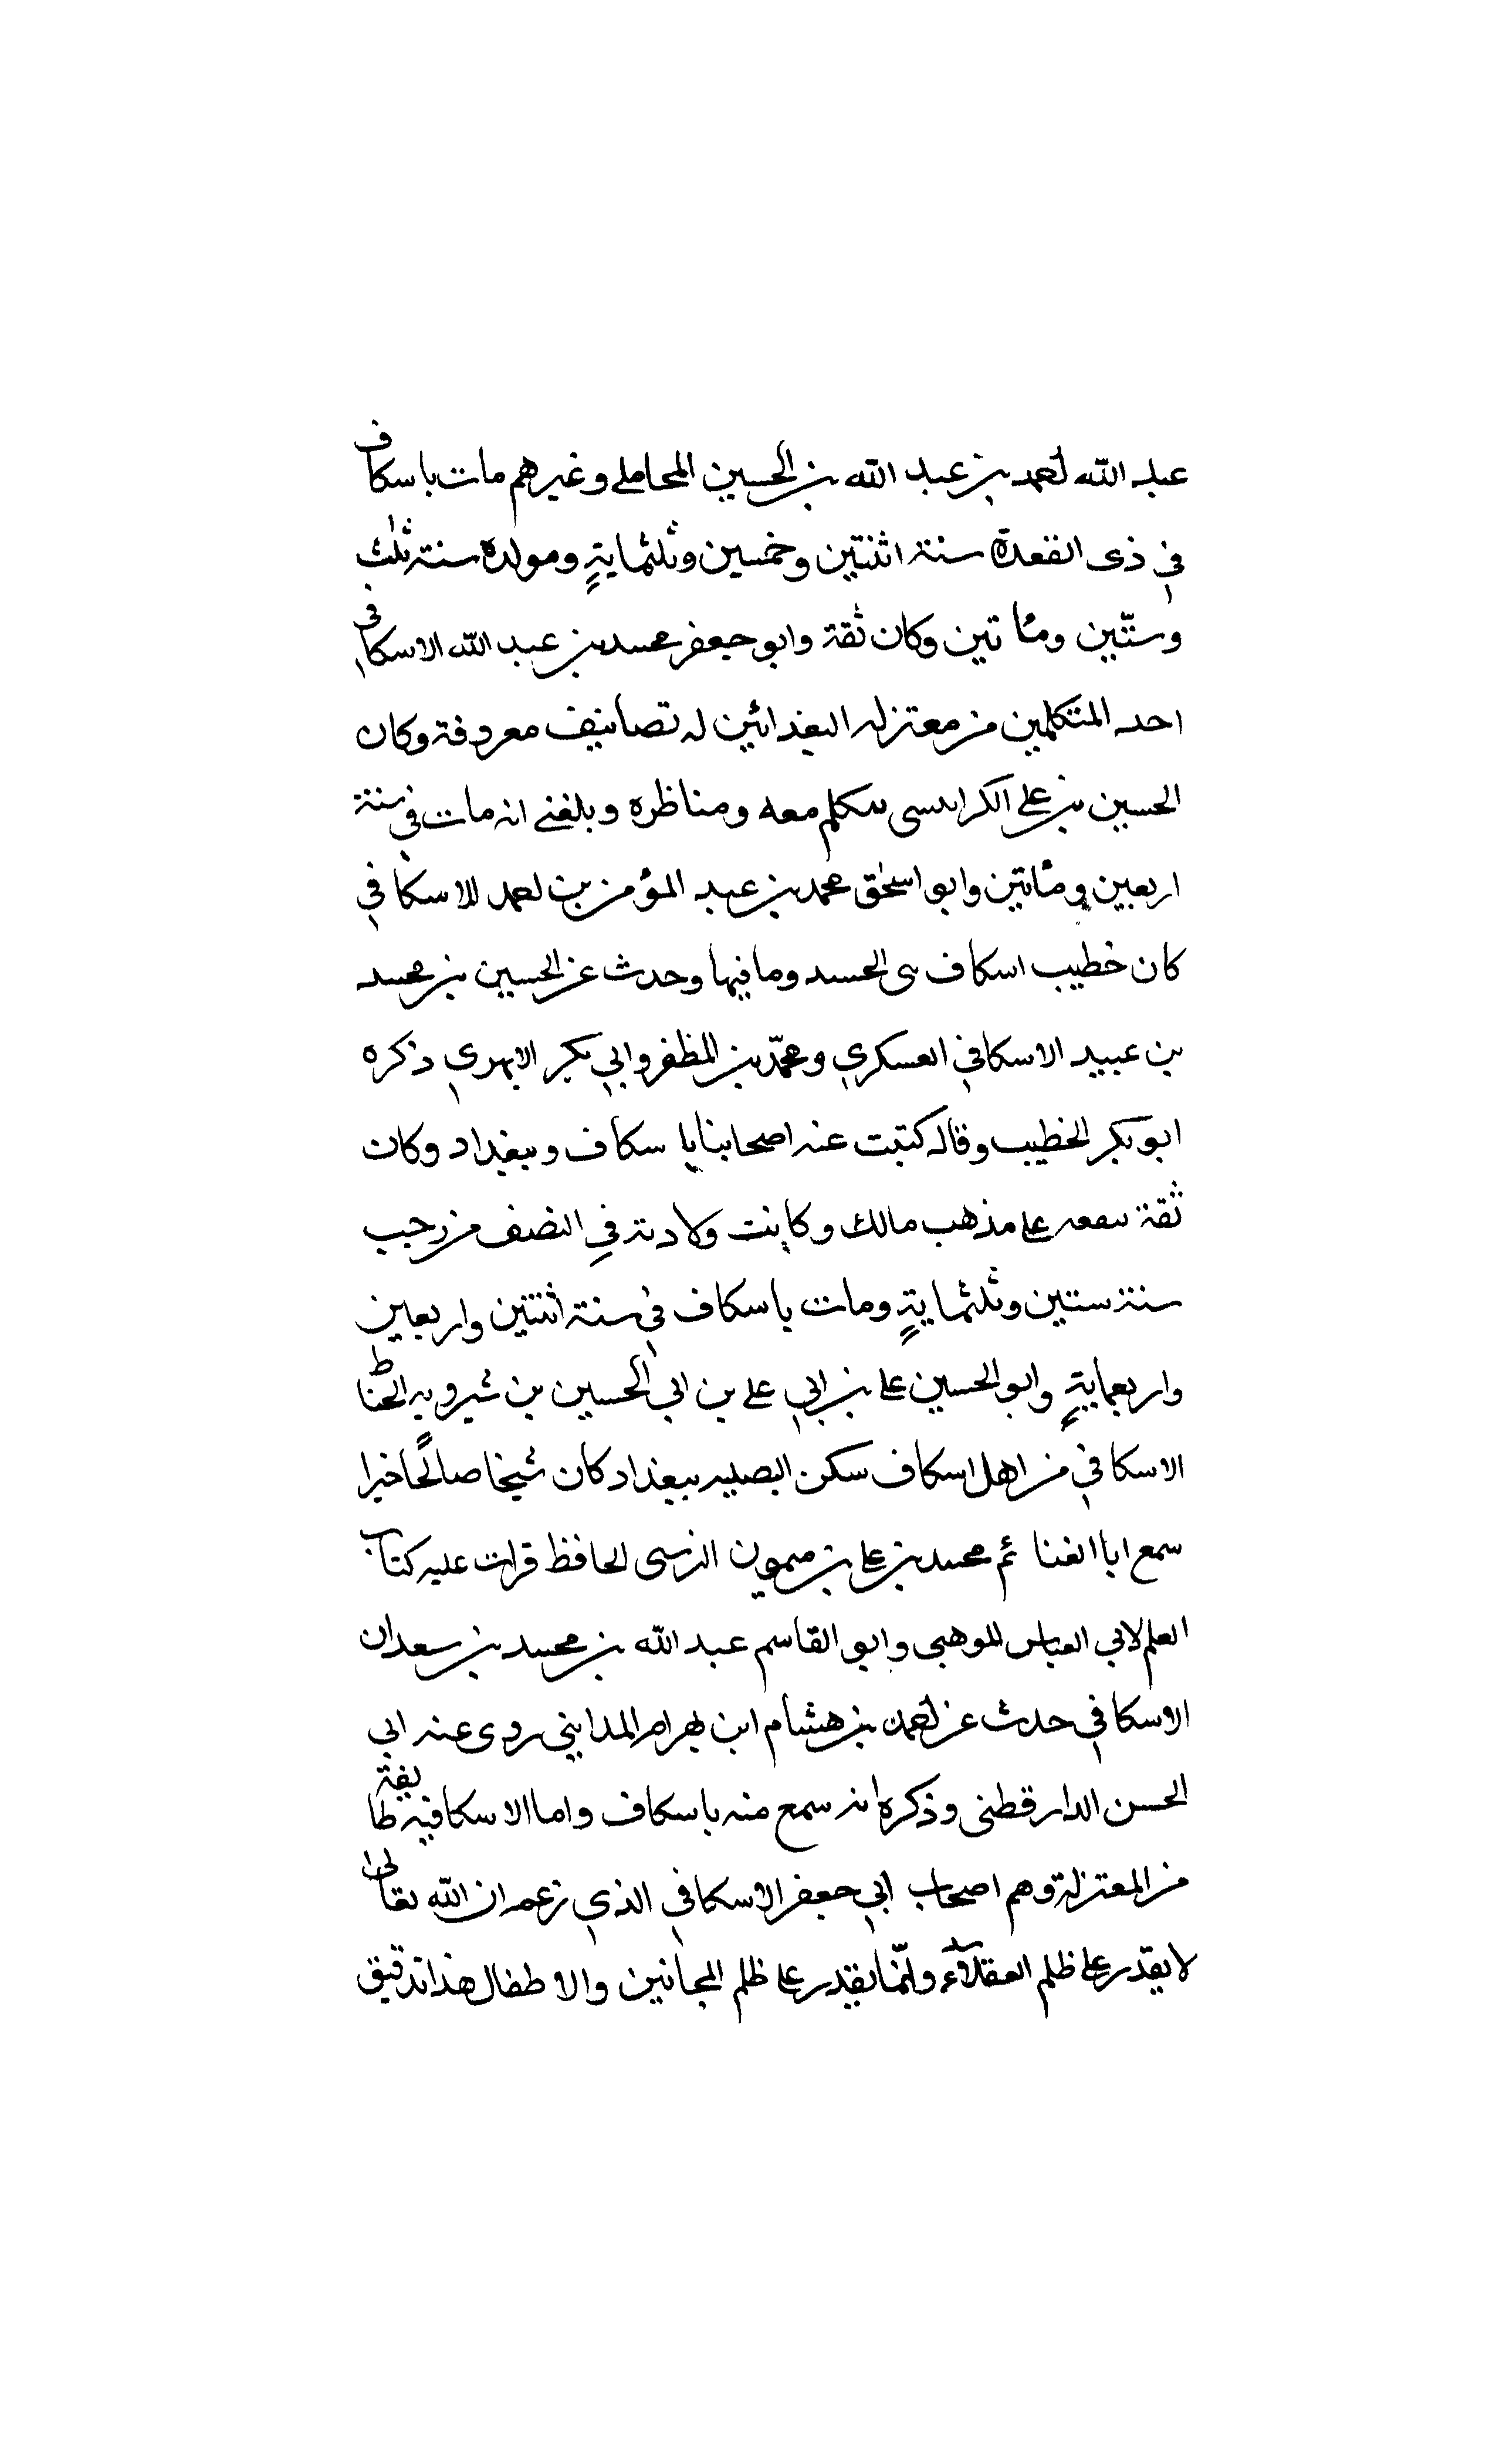 عبد الله احمد بن عبد الله بن الحسين المحاملي وغيرهم مات باسكاف
في ذى القعدة سنة اثنتين وخمسين وثلثماية ومولده سنة ثلث
وستّين ومئاتين وكان ثقة وابو جعفر محمد بن عبد الله الاسكافي
احد المتكلمين من معتزله البغدائين له تصانيف معروفة وكان
الحسين بن علي الكرابيسى يتكلم معه ومناظره وبلغني انه مات في سنة
اربعين ومئاتين وابو اسحٰق محمد بن عبد المؤمن بن احمد الاسكافي
كان خطيب اسكاف بنى الجنيد وما فيها وحدث عن الحسين بن محمد
بن عبيد الاسكافي العسكري ومحمّد بن المظفر وابي بكر الابهري ذكره
ابو بكر الخطيب وقال كتبت عنه اصحابنا با سكاف وببغداد وكان
ثقة تفقه على مذهب مالك وكانت ولادته في النصف من رجب
سنة ستين وثلثماية ومات باسكاف في سنة اثنتين واربعين
واربعماية وابو الحسين على بن ابي علي بن ابي الحسين بن شيرويه الحناط
الاسكافي من اهل اسكاف سكن البصليه ببغداد كان شيخا صالحًا خيرا
سمع ابا الغنائم محمد بن على بن ميمون النرسى الحافظ قرات عليه كتاب
العلم لابي العباس الموهبى وابو القاسم عبد الله بن محمد بن سعدان
الاسكافي حدث عن احمد بن هشام ابن بهرام المدايني روى عنه ابي
الحسن الدارقطنى وذكره انه سمع منه باسكاف واما الاسكافيه طايفة
من المعتزلة وهم اصحاب ابي جعفر الاسكافي الذي زعم ان الله تعالى
لا يقدر على ظلم العقلاء وانّما يقدر على ظلم المجانين والاطفال هذا تدقيق